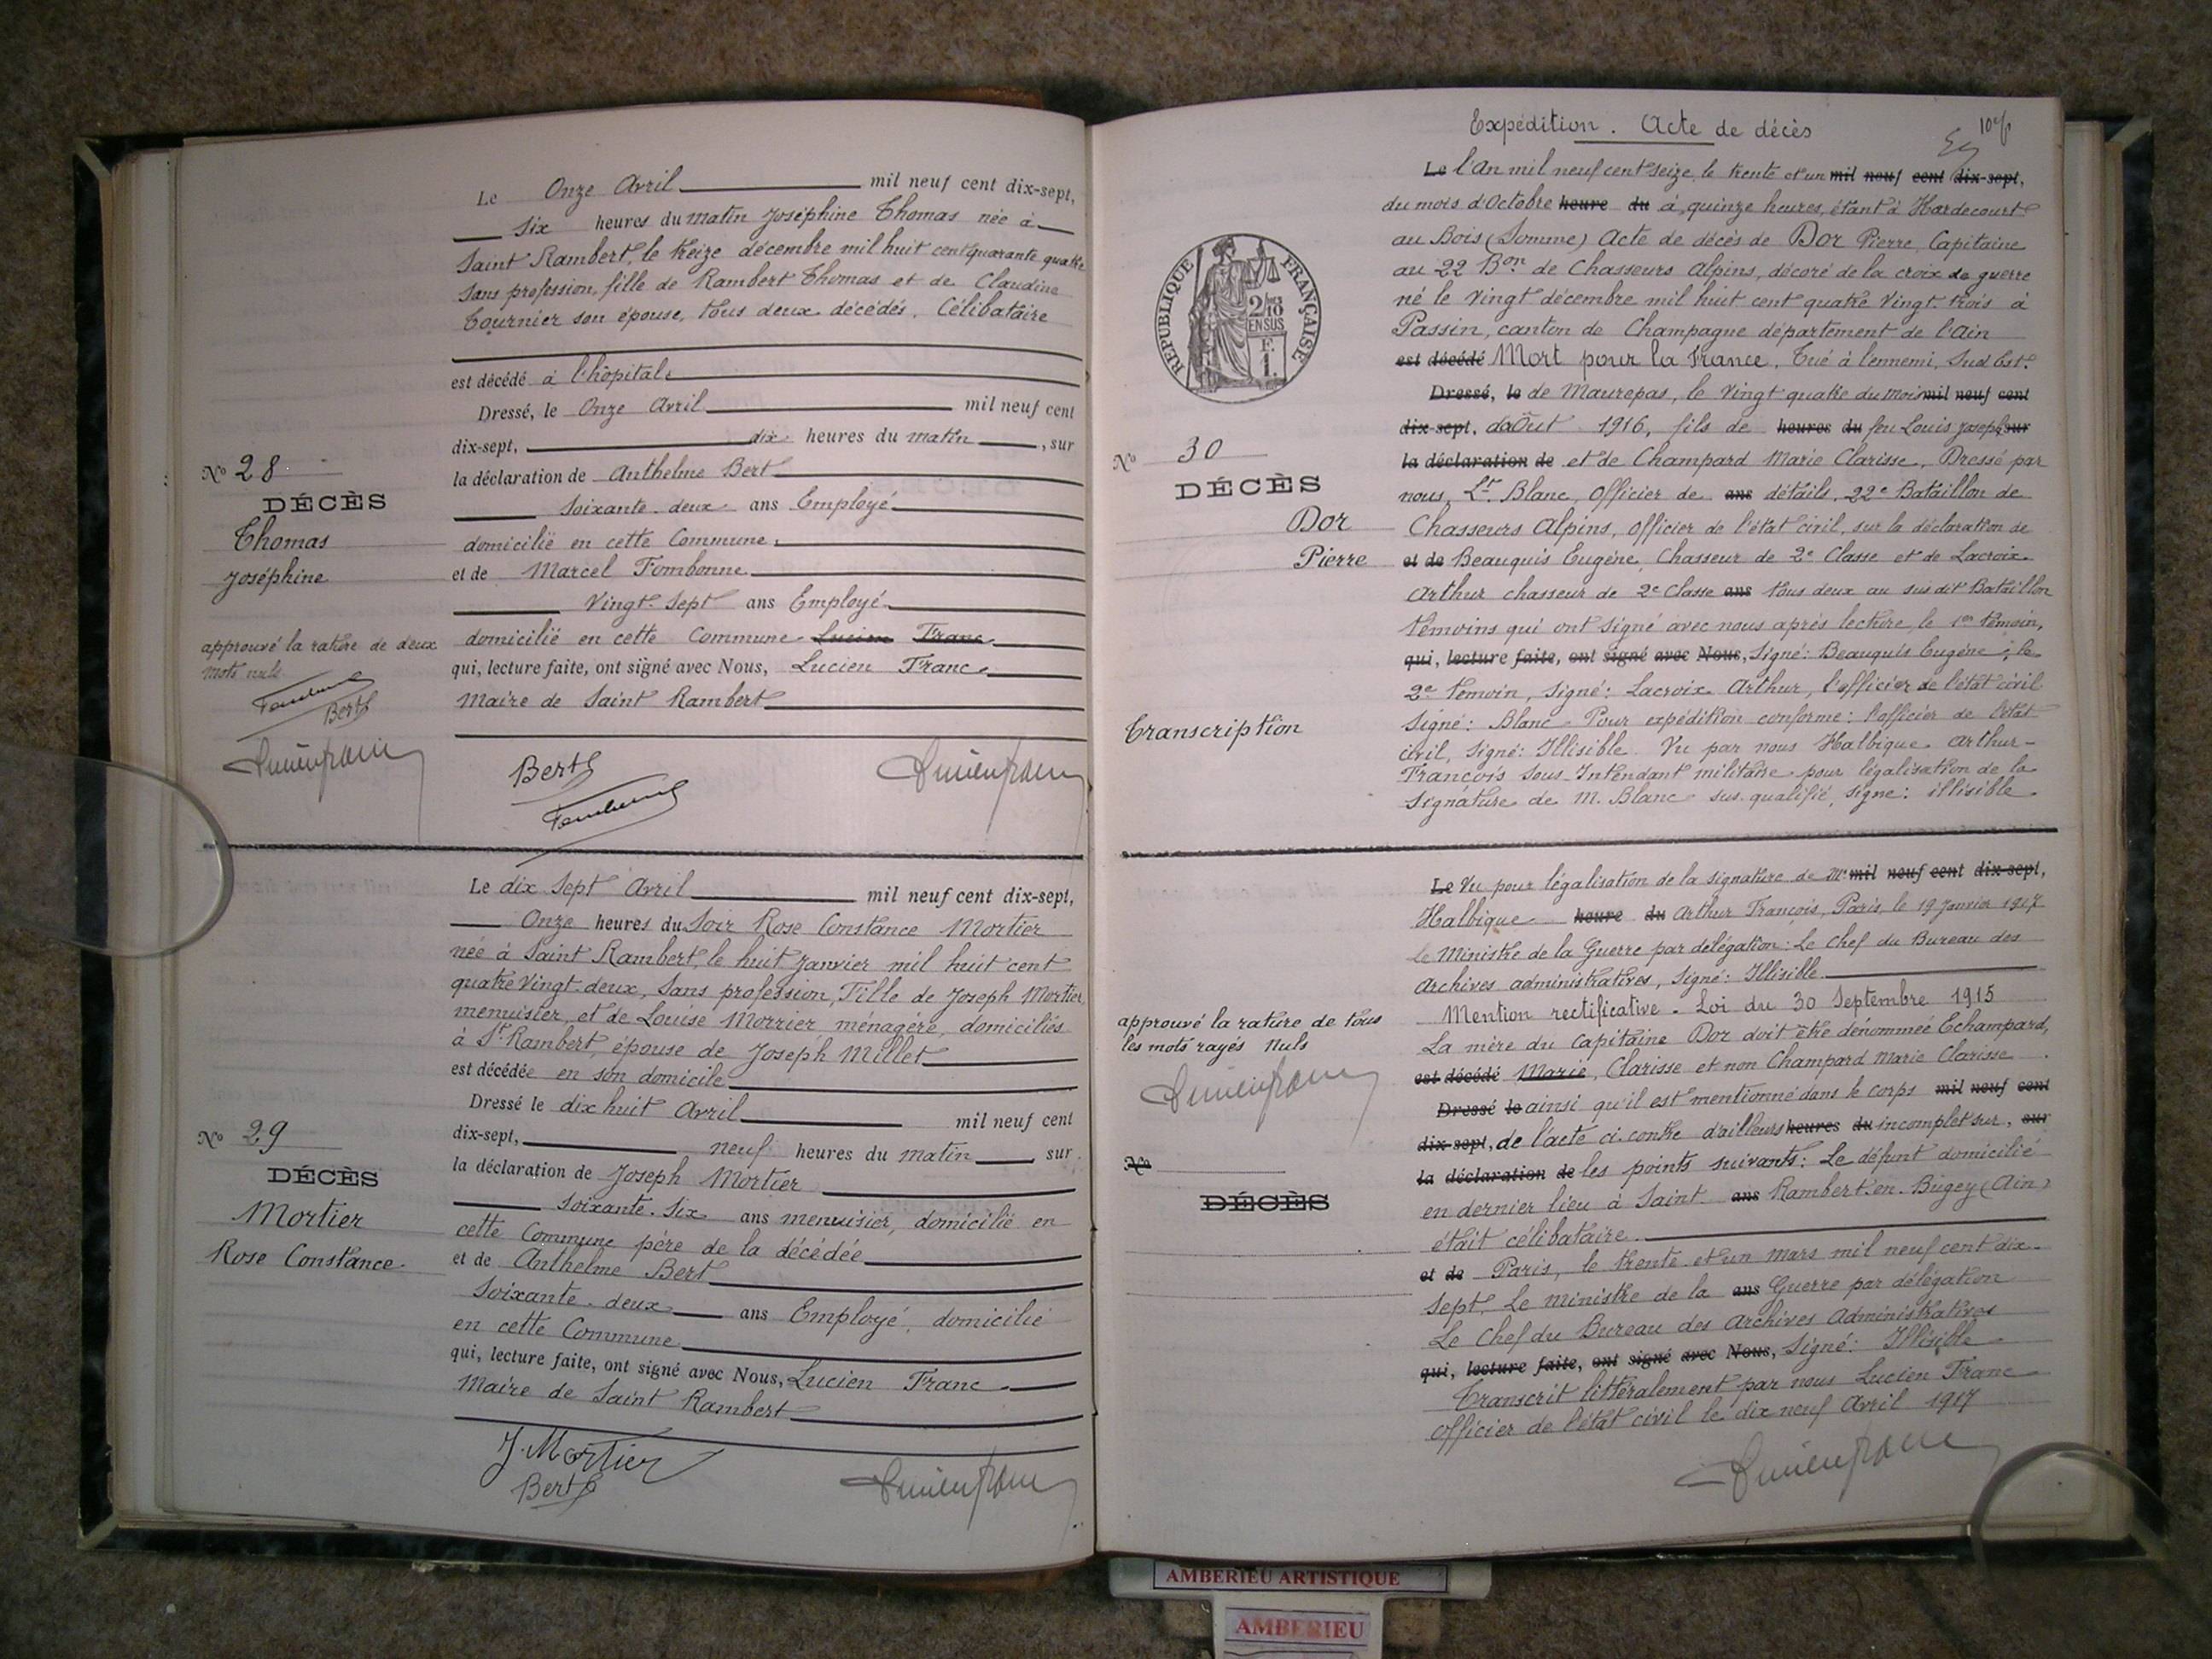 Le Onze Avril mil neuf cent dix-sept,
Six heures du matin Joséphine Thomas née à
Saint Rambert, le treize décembre mil huit cent quarante quatre
sans profession, fille de Rambert Thomas et de Claudine
Tournier son épouse, tous deux décédés. Célibataire
est décédé à l'hôpital.
Dressé, le Onze Avril mil neuf cent
dix-sept, dix heures du matin, sur
la déclaration de Anthelme Bert
soixante-deux ans Employé
domicilié en cette Commune,
et de Marcel Fombonne
Vingt-Sept ans Employé
domicilié en cette Commune Lucien Franc
qui, lecture faite, ont signé avec Nous, Lucien Franc
Maire de Saint Rambert
N° 28
DÉCÈS
Thomas
Joséphine
approuvé la rature de deux
mots nuls
Bert
Bert
Le dix Sept Avril mil neuf cent dix-sept,
Onze heures du Soir Rose Constance Mortier
née à Saint Rambert, le huit Janvier mil huit cent
quatre vingt-deux, sans profession, Fille de Joseph Mortier
menuisier, et de Louise Morrier ménagère, domiciliés
à St Rambert, épouse de Joseph Millet
est décédée en son domicile
Dressé le dix huit Avril mil neuf cent
dix-sept, neuf heures du matin, sur
la déclaration de Joseph Mortier
soixante-six ans menuisier, domicilié en
cette Commune père de la décédée
et de Anthelme Bert
Soixante-deux ans Employé, domicilié
en cette Commune
qui, lecture faite, ont signé avec Nous, Lucien Franc
Maire de Saint Rambert
N° 29
DÉCÈS
Mortier
Rose Constance
J. Mortier
Bert
Expédition. Acte de décès
Le l'An mil neuf cent seize, le trente et un mil neuf cent dix-sept,
du mois d'Octobre heure du à quinze heures, étant à Hardecourt
au Bois (Somme) Acte de décès de Dor Pierre, Capitaine
au 22 Bon de Chasseurs Alpins, décoré de la croix de guerre
né le vingt décembre mil huit cent quatre vingt-trois à
Passin, canton de Champagne département de l'Ain
est décédé Mort pour la France, Tué à l'ennemi, Sud Est.
Dressé, le de Maurepas, le vingt quatre du mois mil neuf cent
dix-sept, d'aOût 1916, fils de heures du feu Louis Joseph sur
la déclaration de et de Champard Marie Clarisse, Dressé par
nous, Lt Blanc, Officier de ans détails, 22e Bataillon de
Chasseurs Alpins, Officier de l'état civil, sur la déclaration de
et de Beauquis Eugène, Chasseur de 2e Classe et de Lacroix
Arthur chasseur de 2e Classe ans tous deux au sus dit Bataillon
témoins qui ont signé avec nous après lecture, le 1er témoin,
qui, lecture faite, ont signé avec Nous, Signé: Beauquis Eugène; le
2e témoin, signé: Lacroix Arthur, l'officier de l'état civil
signé: Blanc. Pour expédition conforme: l'officier de l'état
civil, signé: Illisible. Vu par nous Halbique Arthur-
François Sous-Intendant militaire pour légalisation de la
signature de M. Blanc sus qualifié, signé: illisible
REPUBLIQUE FRANÇAISE
2/10
EN SUS
F.
1.
N° 30
DÉCÈS
Dor
Pierre
Transcription
Le Vu pour légalisation de la signature de Mr mil neuf cent dix-sept,
Halbique heure du Arthur François, Paris, le 19 Janvier 1917
Le Ministre de la Guerre par délégation: Le Chef du Bureau des
Archives administratives, Signé: Illisible
Mention rectificative. Loi du 30 Septembre 1915
La mère du Capitaine Dor doit être dénommée Echampard,
est décédé Marie, Clarisse et non Champard Marie Clarisse
Dressé le ainsi qu'il est mentionné dans le corps mil neuf cent
dix-sept, de l'acte ci-contre d'ailleurs heures du incomplet sur, sur
la déclaration de les points suivants: Le défunt domicilié
en dernier lieu à Saint ans Rambert-en-Bugey (Ain)
était célibataire.
et de Paris, le trente et un mars mil neuf cent dix-
sept. Le ministre de la ans Guerre par délégation
Le Chef du Bureau des Archives Administratives
qui, lecture faite, ont signé avec Nous, Signé: Illisible
Transcrit littéralement par nous Lucien Franc
officier de l'état civil le dix neuf Avril 1917
approuvé la rature de tous
les mots rayés nuls
N°
DÉCÈS
AMBERIEU ARTISTIQUE
AMBERIEU